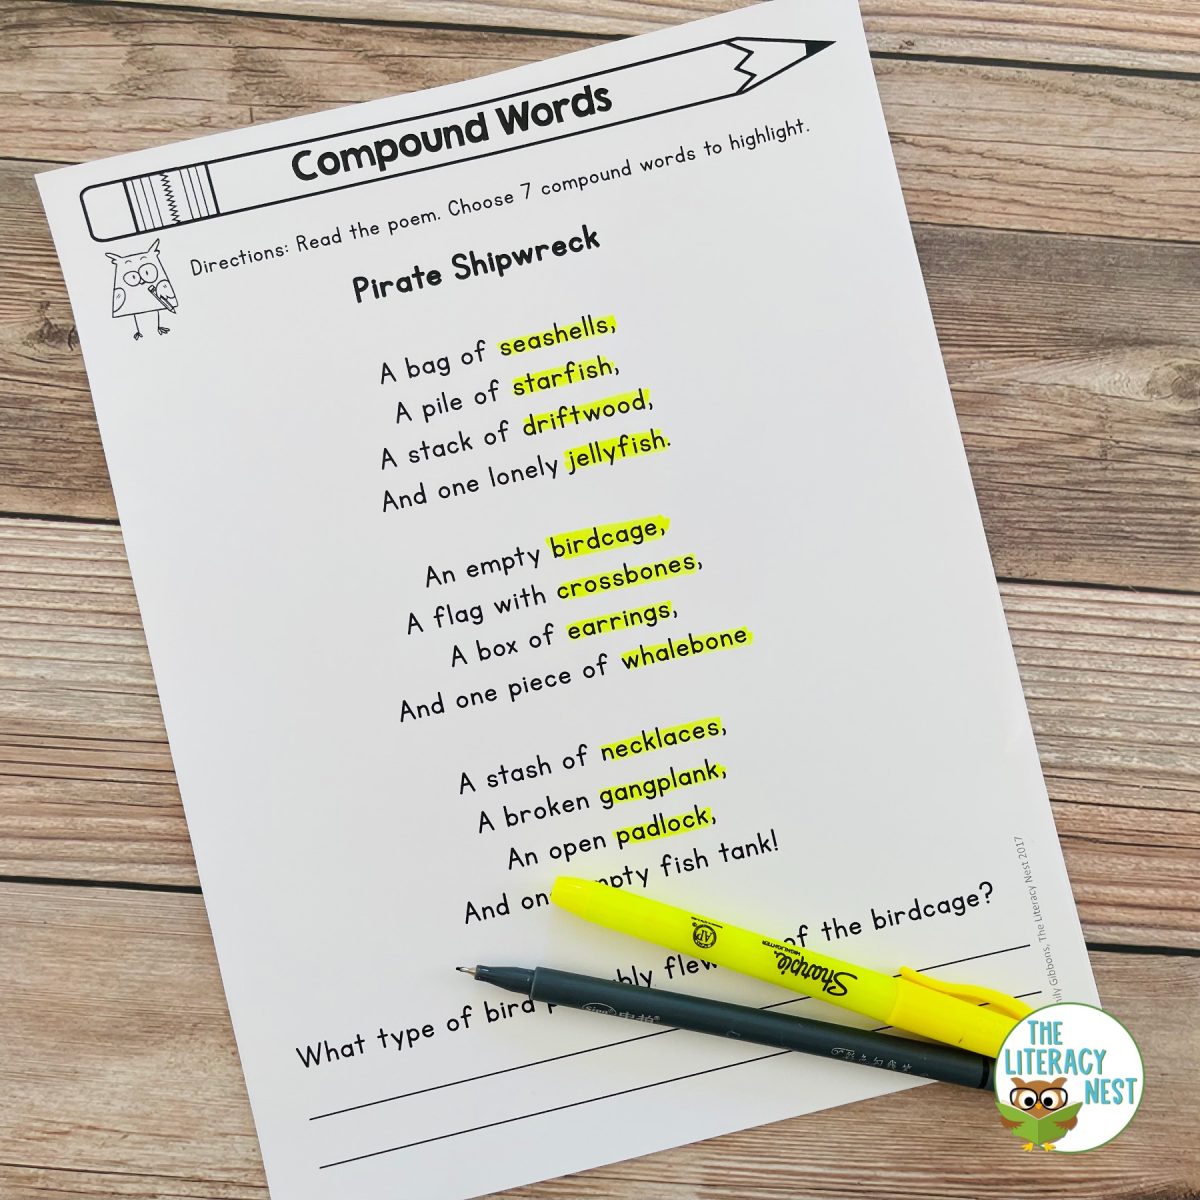 Compound Words
Directions: Read the poem. Choose 7 compound words to highlight.
Pirate Shipwreck
A bag of seashells,
A pile of starfish,
A stack of driftwood,
And one lonely jellyfish.
An empty birdcage,
A flag with crossbones,
A box of earrings,
And one piece of whalebone
A stash of necklaces,
A broken gangplank,
An open padlock,
And fish tank!
What type of bird flew of the birdcage?
Gibbons, The Literacy Nest 2017
AP
Sharpie
HIGHLIGHTER
THE
LITERACY
NEST